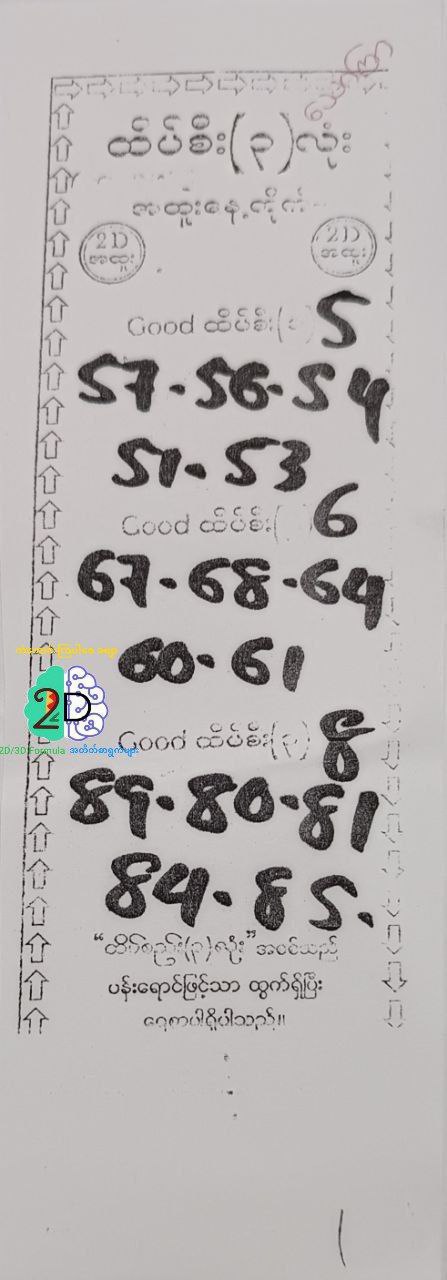 ထိပ်စီး(၃)လုံး
အထူးနေ့တိုက်
2D
အထူး
2D
အထူး
Good ထိပ်စီး(၁) 5
57-56-54
51-53
Good ထိပ်စီး( ) 6
67-68-64
60-61
2D
2D/3D Formula အတိတ်စာရွက်များ
Good ထိပ်စီး(၃) 8
89-80-81
84-85.
“ထိပ်စည်း(၃)လုံး” အစင်သည်
ပန်းရောင်ဖြင့်သာ ထွက်ရှိပြီး
ရေစာပါရှိပါသည်။